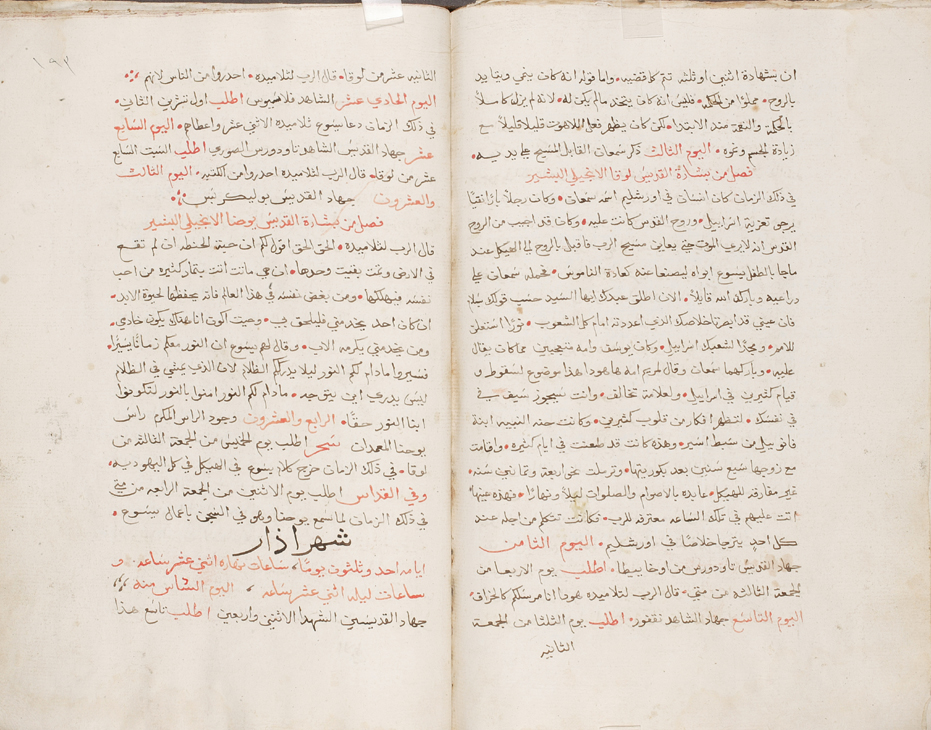 ان بشهادة اثنين او ثلثه تتم كل قضيه • واما قوله انه كان ينمي ويتايد
بالروح • مملوا من الحكمه • فليس انه كان يتخذ مالم يكن له • لانه لم يزل كاملاً
بالحكمة والنعمة منذ الابتدا • لكن كان يظهر فعل اللاهوت قليلا قليلاً مع
زيادة الجسم ونموه • اليوم الثالث ذكر سمعان القابل المسيح على يديه •
فصل من بشارة القديس لوقا الانجيلي البشير
في ذلك الزمان كان انسان في اورشليم اسمه سمعان • وكان رجلاً باراً تقيا
يرجو تعزية اسراييل • وروح القدس كانت عليه • وكان قد اجيب من الروح
القدس انه لا يري الموت حتي يعاين مسيح الرب فاقبل بالروح الي الهيكل عند
ماجا بالطفل يسوع ابواه ليصنعا عنه كعادة الناموس • فحمله سمعان علي
دراعيه وبارك الله قايلاً • الان اطلق عبدك ايها السيد حسب قولك بسلام
فان عيني قد ابصرتا خلاصك الذي اعددته امام كل الشعوب • نورًا استعلن
للامم • ومجدًا لشعبك اسراييل • وكان يوسف وامه متعجبين مما كان يقال
عليه • وباركهما سمعان وقال لمريم امه ها هودا هدا موضوع لسقوط و
قيام كثيرين في اسراييل • ولعلامة تخالف • وانت سيجوز سيف في
في نفسك • لتظهر افكار من قلوب كثيرين • وكانت حنه النبيه ابنة
فانوييل من سبط اشير • وهذه كانت قد طعنت في ايام كثيره • واقامت
مع زوجها سبع سنين بعد بكوريتها • وترملت نحو اربعة وثمانين سنه •
غير مفارقه للهيكل • عابده بالاصوام والصلوات ليلاً ونهارًا • فهذه عينها
اتت عليهم في تلك الساعه معترفه للرب • فكانت تتكلم من اجله عند
كل احدٍ يترجا خلاصًا في اورشليم • اليوم الثامن
جهاد القديس تاودورس من اوخاييطا • اطلب يوم الاربعا من
الجمعة الثالثه من متي • قال الرب لتلاميده هودا انا مرسلكم كالخراف •
اليوم التاسع جهاد الشاهد نقفور • اطلب يوم الثلثا من الجمعة
الثانيه
١٩٢
الثانيه عشر من لوقا • قال الرب لتلاميده • احدروا من الناس لانهم
اليوم الحادي عشر الشاهد فلاسيوس اطلب اول تشرين الثاني •
في ذلك الزمان دعا يسوع تلاميده الاثني عشر واعطاهم • اليوم السابع
عشر جهاد القديس الشاهد تاودورس الصوري اطلب السبت السابع
عشر من لوقا • قال الرب لتلاميده احدروا من الكتبه • اليوم الثالث
والعشرون جهاد القديس بوليكربس
فصل من بشارة القديس يوحنا الانجيلي البشير
قال الرب لتلاميده • الحق الحق اقول لكم ان حبة الحنطه ان لم تقع
في الارض وتمت بقيت وحدها • ان هي ماتت أتت بثمار كثيره من احب
نفسه فيهلكها • ومن بغض نفسه في هذا العالم فانه يحفظها لحيوة الابد •
ان كان احد يخدمني فليلحق بي • وحيت اكون انا هناك يكون خادمي •
ومن يخدمني يكرمه الاب • وقال لهم يسوع ان النور معكم زمانًا يسيرًا •
فسيروا مادام لكم النور ليلا يدرككم الظلام لان الذي يمشي في الظلام
ليس يدري اين يتوجه • مادام لكم النور امنوا بالنور لتكونوا
ابنا النور حقًا • الرابع والعشرون وجود الراس المكرم راس
يوحنا المعمدان سحر اطلب يوم الخميس من الجمعة الثالثه من
لوقا • في ذلك الزمان خرج كلام يسوع في الهيكل في كل اليهوديه •
وفي القداس اطلب يوم الاثنين من الجمعة الرابعه من متي
في ذلك الزمان لما سمع يوحنا وهو في السجن باعمال يسوع •
شهر اذار
ايامه احد وثلثون يومًا • ساعات نهاره اثني عشر ساعه • و
ساعات ليله اثني عشر ساعه • اليوم التاسع منه
جهاد القديسين الشهدا الاثنين واربعين اطلب تاسع هذا